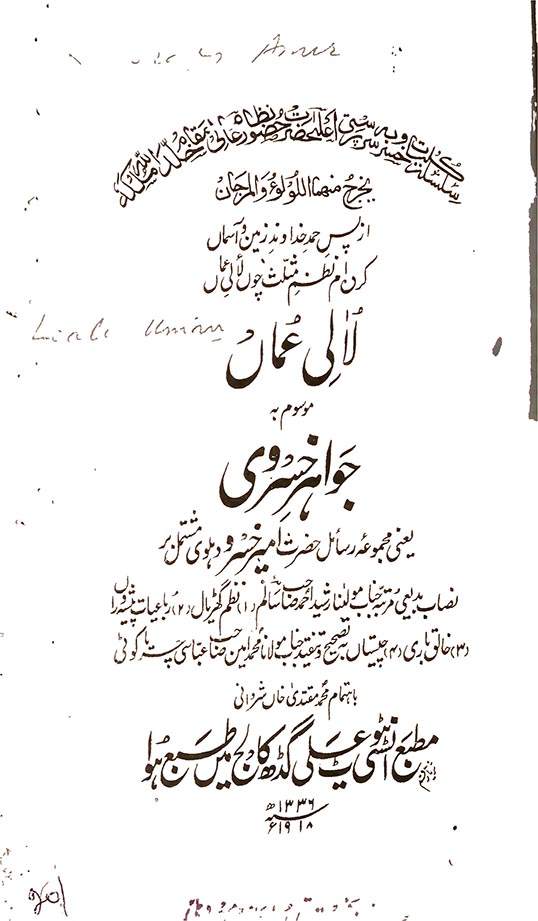 سلسلہ کلیات خسرو بہ سرپرستی اعلیٰحضرت حضور نظام عالی مقام خلد اللہ ملکہ
یخرج منہما اللولوء والمرجان
از پسِ حمدِ خداوندِ زمین و آسماں
کردہ ام نظمِ مثلث چوں لآلیِ عماں
لآلیِ عُماں
موسوم بہ
جواہرِ خسروی
یعنی مجموعۂ رسائل حضرت امیر خسرو دہلوی مشتمل بر
نصاب بدیعی مرتبہ جناب مولٰنا رشید احمد صاحب سالم (۱) نظم گھڑیال (۲) رباعیات پیشہ وراں
(۳) خالق باری (۴) چیستاں بہ تصحیح و تنقید جناب مولانا محمد امین صاحب عباسی چریاکوٹی
باہتمام محمد مقتدیٰ خاں شروانی
مطبع انسٹی ٹیوٹ علی گڈھ کالج میں طبع ہوا
۱۳۳۶ھ
سنہ ۱۹۱۸ء